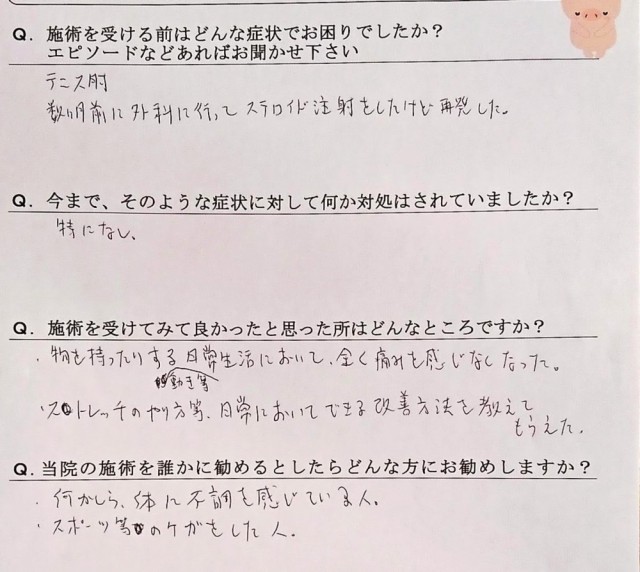 Q. 施術を受ける前はどんな症状でお困りでしたか？
エピソードなどあればお聞かせ下さい
テニス肘
数ヶ月前に外科に行って ステロイド注射をしたけど 再発した。
Q. 今まで、そのような症状に対して何か対処はされていましたか？
特になし、
Q. 施術を受けてみて良かったと思った所はどんなところですか？
・物を持ったりする日常生活において、全く痛みを感じなくなった。
動き等
・ストレッチのやり方等、日常においてできる改善方法を教えて
もらえた。
Q. 当院の施術を誰かに勧めるとしたらどんな方にお勧めしますか？
・何かしら、体に不調を感じている人。
・スポーツ等のケガをした人。